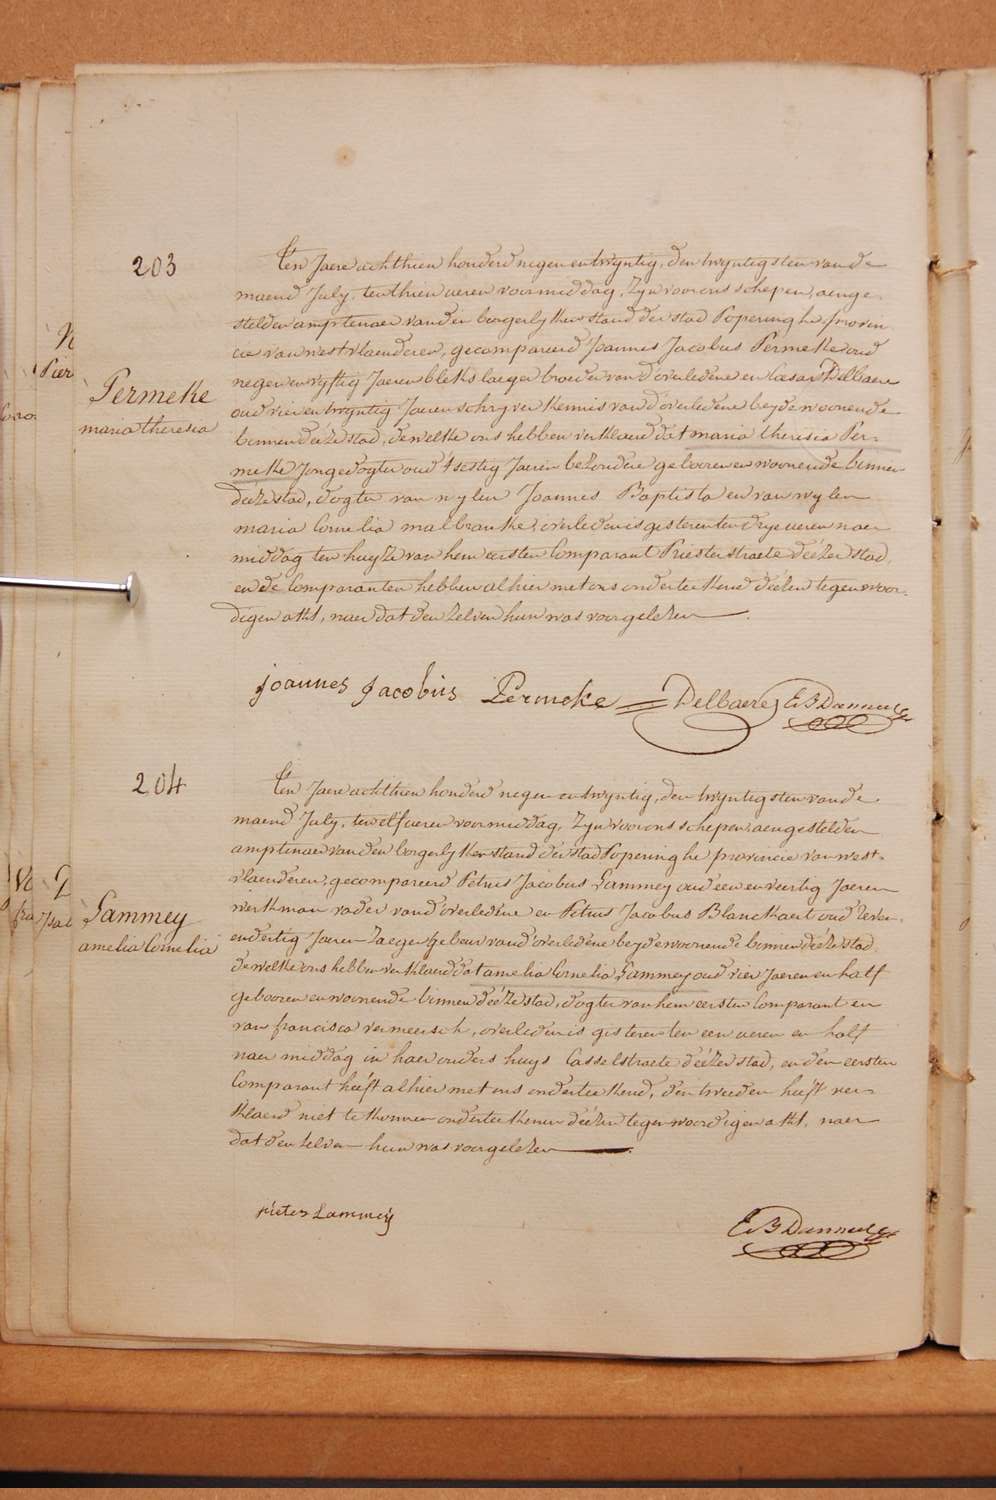 203
Permeke
maria theresia
Ten Jaere achthien honderd negen en twyntig, den twyntigsten van de
maend July, ten thien ueren voormiddag, Zyn voor ons schepen, aenge-
stelden amptenaer van den borgerlyken stand der stad Poperinghe provin
cie van westvlaenderen, gecompareerd Joannes Jacobus Permeke oud
negen en vyftig Jaeren blekslaeger broeder van d'overledene en Cesar Delbaere
oud vier en twyntig Jaeren schryver kennis van d'overledene beyde woonende
binnen deéze stad, dewelke ons hebben verklaerd dat maria theresia Per-
meke Jonge dogter oud t'sestig Jaeren bezondere gebooren en woonende binnen
deéze stad, dogter van wylen Joannes Baptista en van wylen
maria Cornelia malbranke, overleden is gisteren ten drye ueren naer
middag ten huyze van hem eersten Comparant Priesterstraete deézer stad,
en de Comparanten hebben alhier met ons onderteekend deézen tegenwoor-
digen akt, naer dat den zelven hun was voorgelezen.
joannes jacobus Permeke Delbaere E B Danneel
204
Lammey
amelia Cornelia
Ten Jaere achthien honderd negen en twyntig, den twyntigsten van de
maend July, ten elf ueren voormiddag, Zyn voor ons schepen, aengestelden
amptenaer van den borgerlyken stand der stad Poperinghe provincie van west-
vlaenderen, gecompareerd Petrus Jacobus Lammey oud een en veertig Jaeren
werkman vader van d'overledene en Petrus Jacobus Blanckaert oud zeven
en dertig Jaeren Zaeger gebeur van d'overledene beyde woonende binnen deéze stad
dewelke ons hebben verklaerd dat amelia Cornelia Lammey oud vier Jaeren en half
gebooren en woonende binnen deéze stad, dogter van hem eersten Comparant en
van francisca vermeersch, overleden is gisteren ten een ueren en half
naer middag in haer ouders huys Casselstraete deézer stad, en den eersten
Comparant heéft alhier met ons onderteekend, den tweeden heéft ver-
klaerd niet te konnen onderteekenen deézen tegenwoordigen akt, naer
dat den zelven hun was voorgelezen.
pieter Lammeÿ E B Danneel